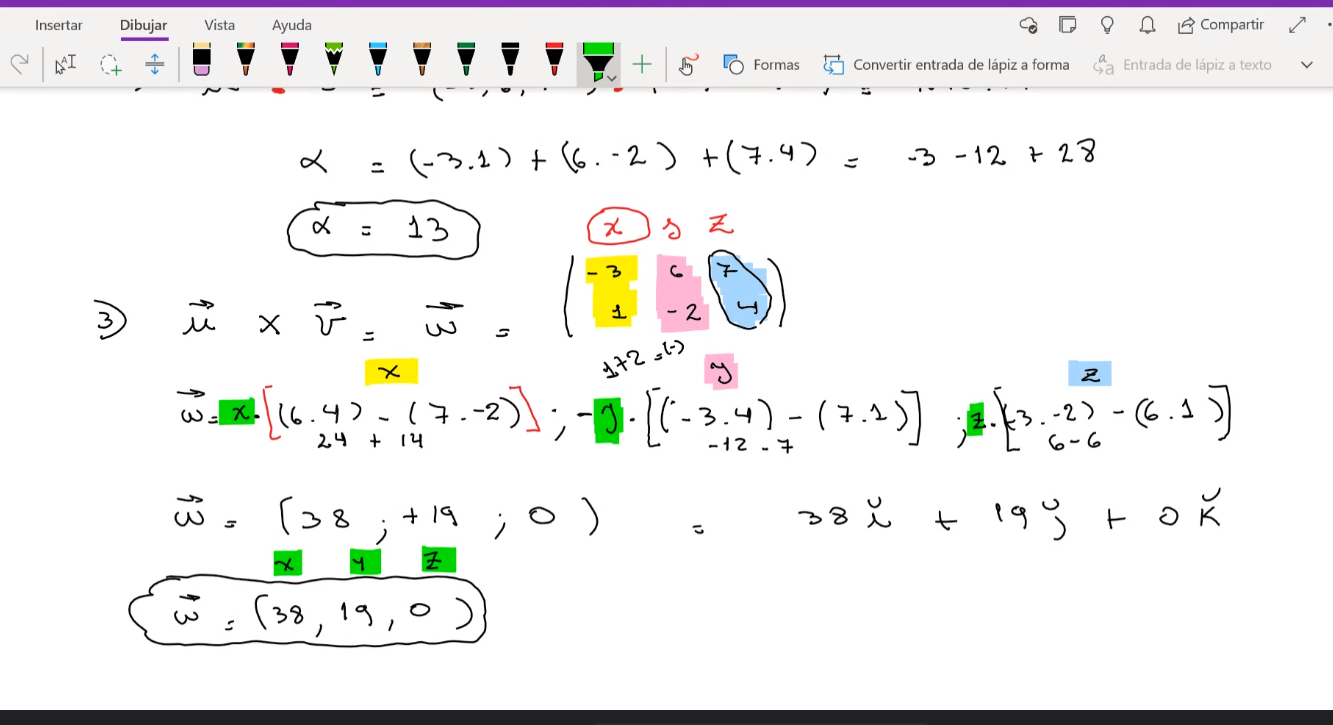 Insertar Dibujar Vista Ayuda Compartir
Formas Convertir entrada de lápiz a forma Entrada de lápiz a texto
α = (-3.1) + (6.-2) + (7.4) = -3 -12 + 28
α = 13
x y z
-3 6 7
1 -2 4
3) u x v = w =
1+2 = (-)
x y z
w = x.[(6.4) - (7.-2)] ; -y.[(-3.4) - (7.1)] ; z.[-3.-2) - (6.1)]
24 + 14 -12 - 7 6-6
w = (38 ; +19 ; 0) = 38 i + 19 j + 0 k
x y z
w = (38, 19, 0)